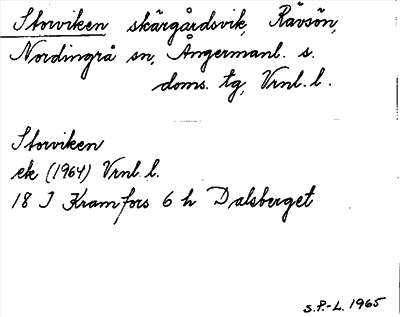 Storviken skärgårdsvik, Rävsön,
Nordingrå sn, Ångermanl. s.
doms. tg, Vrnl. l.
Storviken
ek (1964) Vrnl. l.
18 J Kramfors 6 h Dalsberget
S.P.-L. 1965